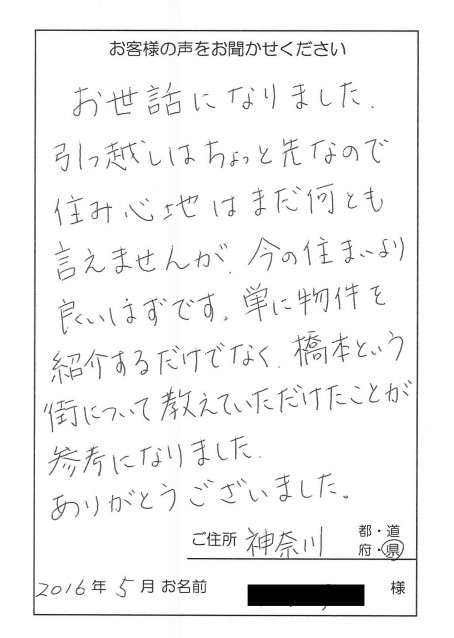 お客様の声をお聞かせください
お世話になりました.
引っ越しはちょっと先なので
住み心地はまだ何とも
言えませんが、今の住まいより
良いはずです。単に物件を
紹介するだけでなく、橋本という
街について教えていただけたことが
参考になりました.
ありがとうございました。
ご住所 神奈川 都・道
府・県
2016年 5月 お名前 様